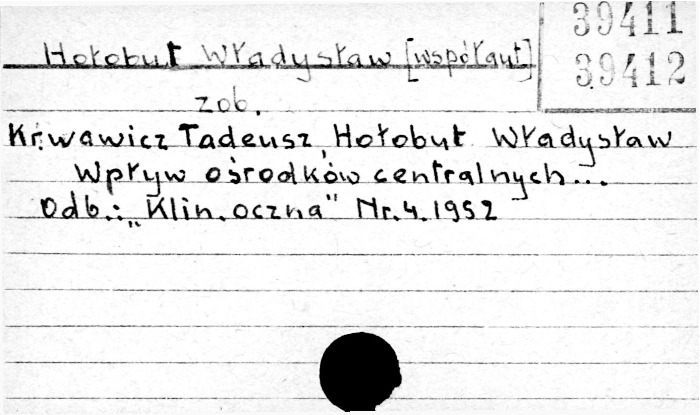 39411
Hołobut Władysław [współaut]
39412
zob.
Krwawicz Tadeusz, Hołobut Władysław
Wpływ ośrodków centralnych...
Odb.: „Klin. oczna" Nr.4.1952